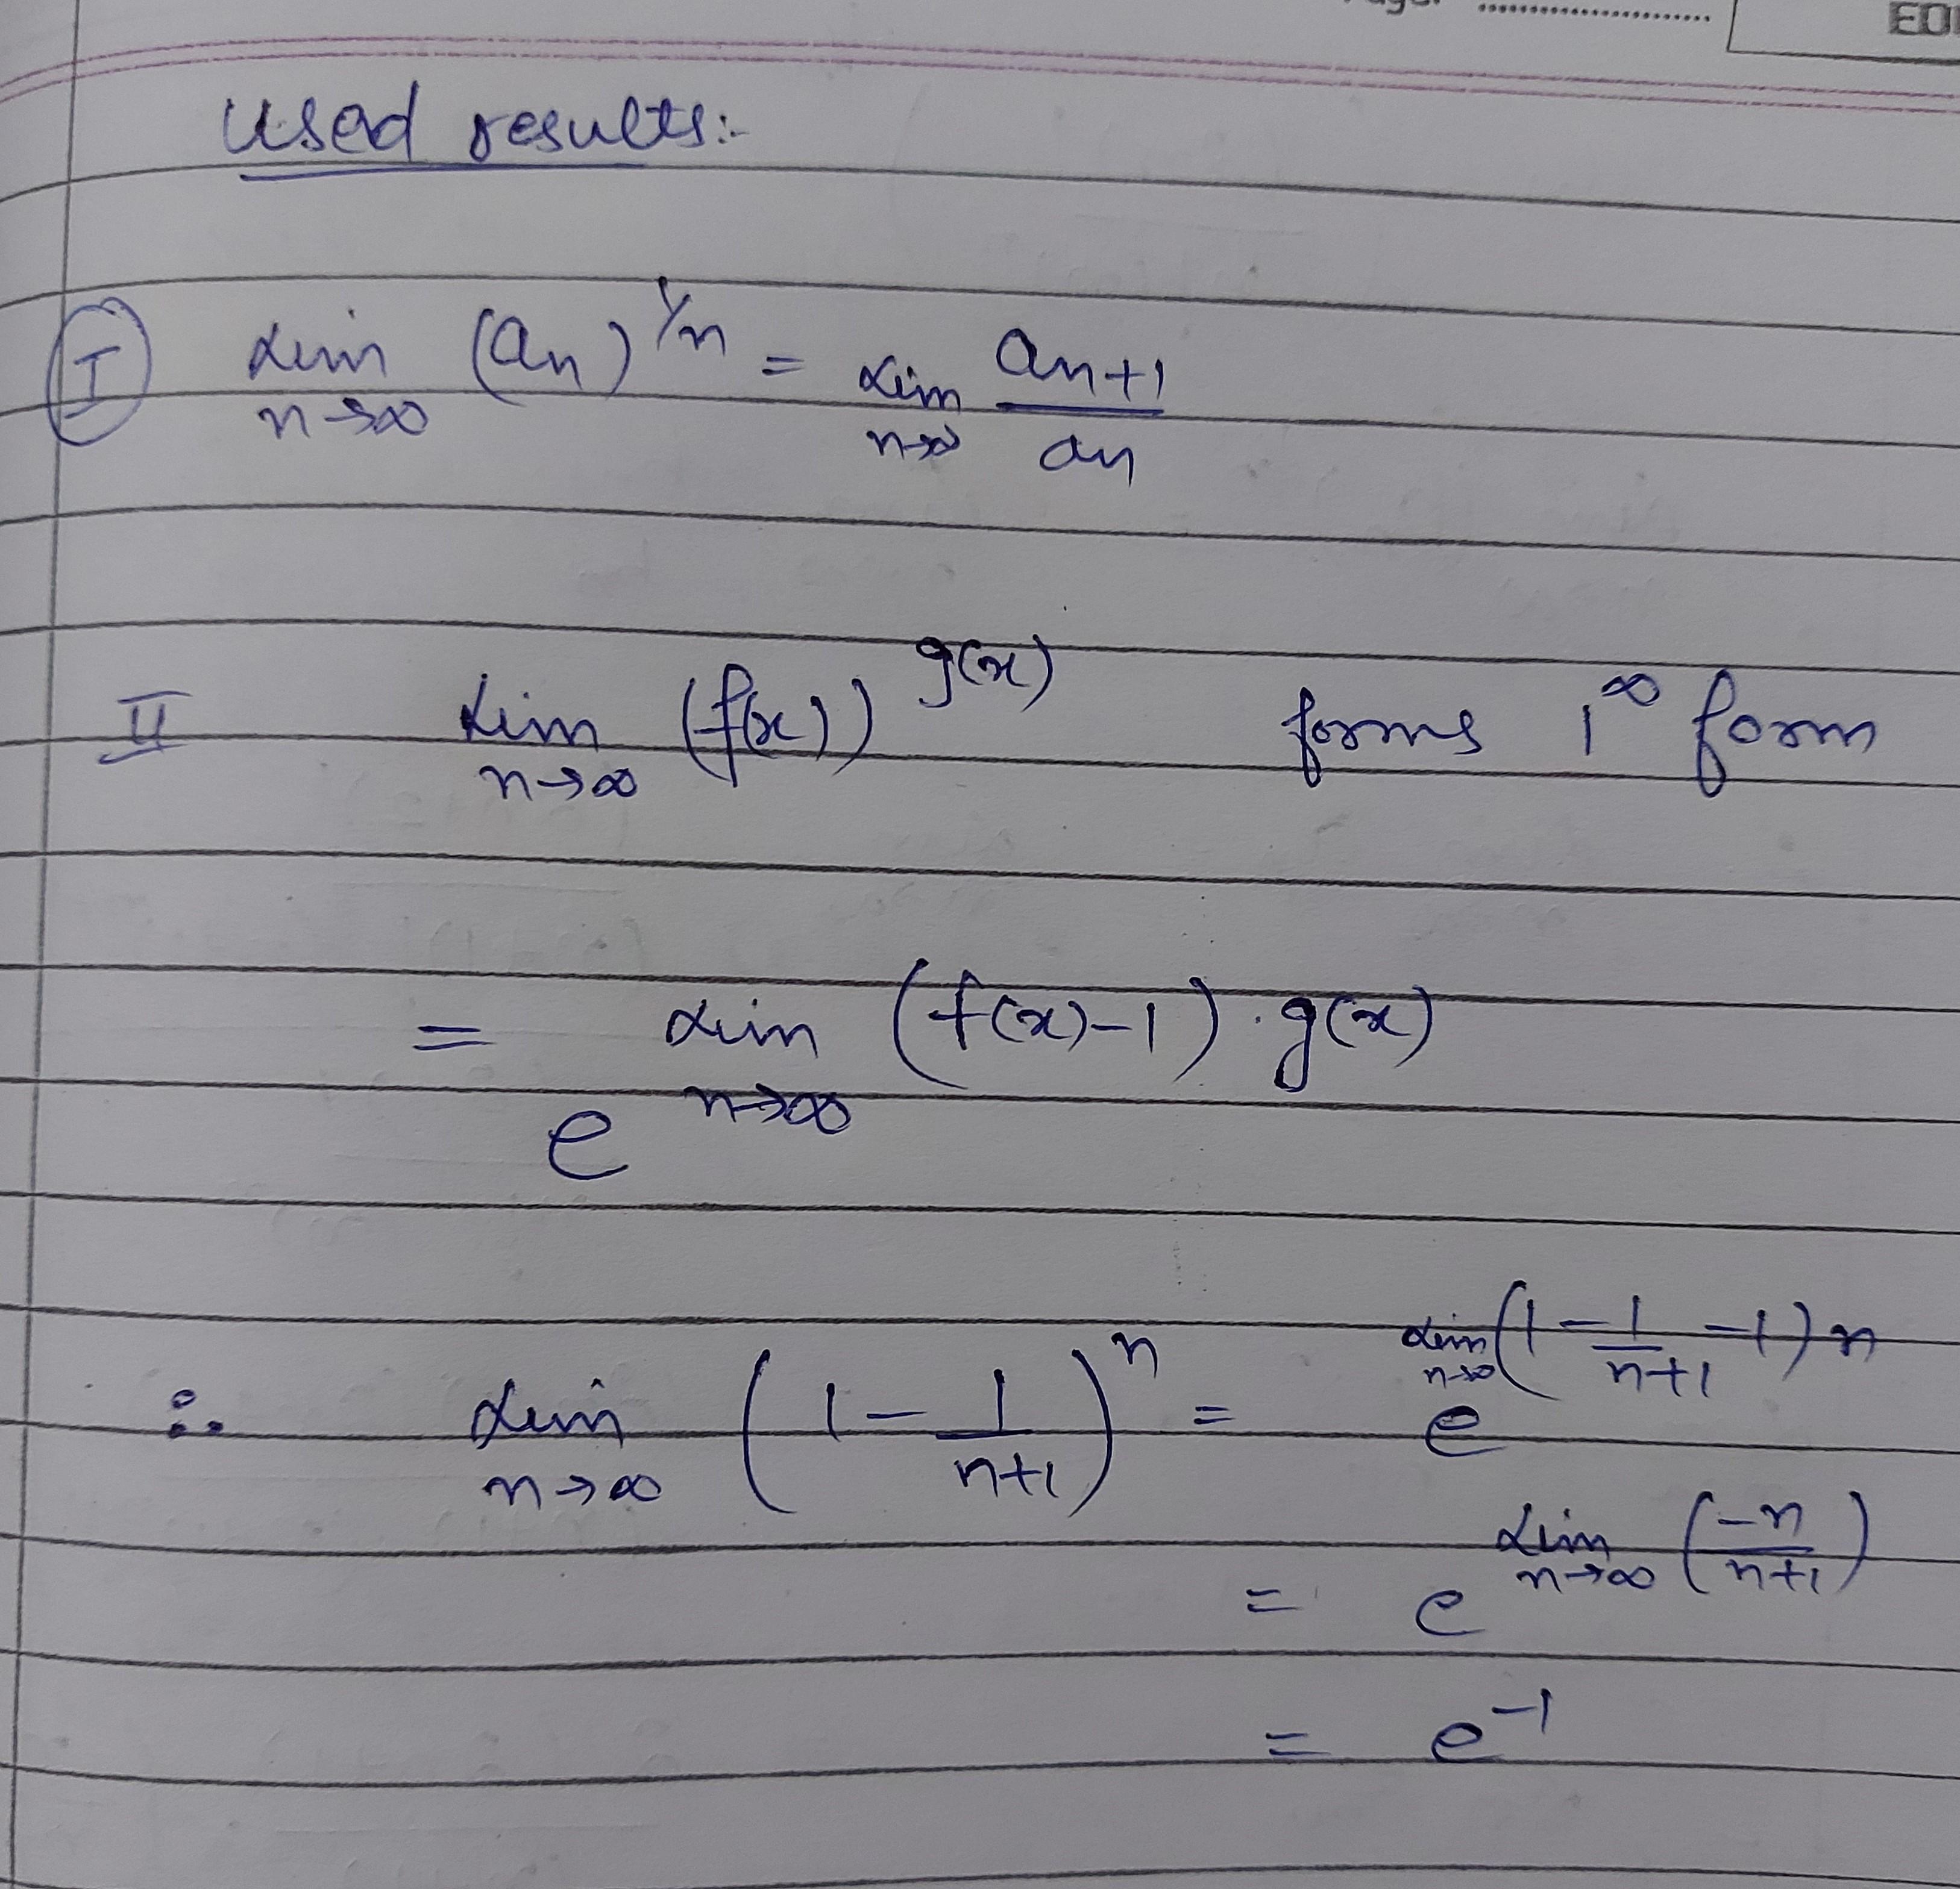 EO
Used results:-
I lim n→∞ (an)^1/n = lim n→∞ an+1 / an
II lim n→∞ (f(x))^g(x) forms 1^∞ form
= e^lim n→∞ (f(x)-1).g(x)
∴ lim n→∞ (1 - 1/n+1)^n = e^lim n→∞ (1 - 1/n+1 - 1)n
= e^lim n→∞ (-n/n+1)
= e^-1